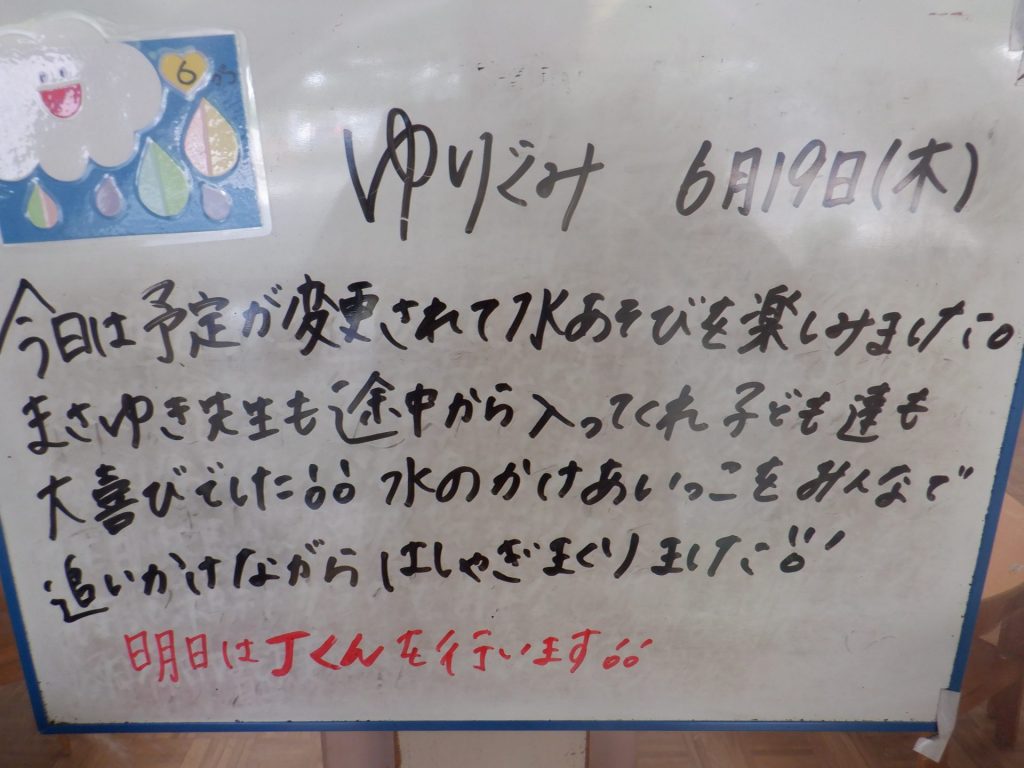 6がつ
ゆりぐみ 6月19日(木)
今日は予定が変更されて水あそびを楽しみました。
まさゆき先生も途中から入ってくれ子ども達も
大喜びでした!! 水のかけあいっこをみんなで
追いかけながらはしゃぎまくりました!!
明日はJくんを行います!!